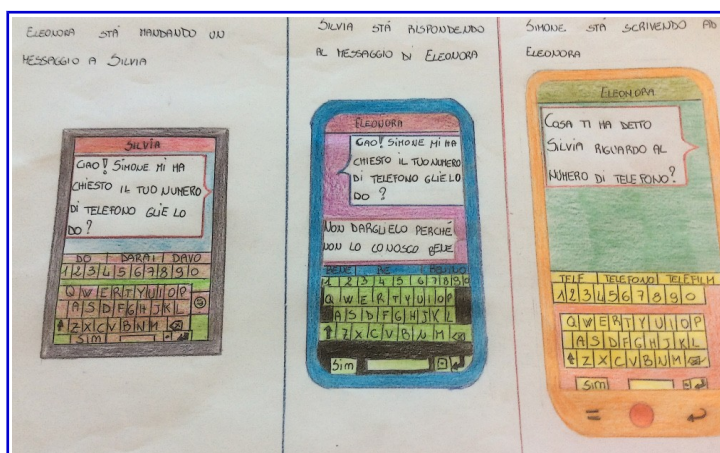 ELEONORA STÀ MANDANDO UN
MESSAGGIO A SILVIA
SILVIA
CIAO! SIMONE MI HA
CHIESTO IL TUO NUMERO
DI TELEFONO GLIE LO
DO?
DO DARAI DAVO
1 2 3 4 5 6 7 8 9 0
Q W E R T Y U I O P
A S D F G H J K L
Z X C V B N M
SIM
SILVIA STÀ RISPONDENDO
AL MESSAGGIO DI ELEONORA
ELEONORA
CIAO! SIMONE MI HA
CHIESTO IL TUO NUMERO
DI TELEFONO GLIE LO
DO?
NON DARGLIELO PERCHÉ
NON LO CONOSCO BENE
BENE
1 2 3 4 5 6 7 8 9 0
Q W E R T Y U I O P
A S D F G H J K L
Z X C V B N M
Sim
SIMONE STÀ SCRIVENDO AD
ELEONORA
ELEONORA
COSA TI HA DETTO
SILVIA RIGUARDO AL
NUMERO DI TELEFONO?
TELE TELEFONO TELEFILM
1 2 3 4 5 6 7 8 9 0
Q W E R T Y U I O P
A S D F G H J K L
Z X C V B N M
Sim